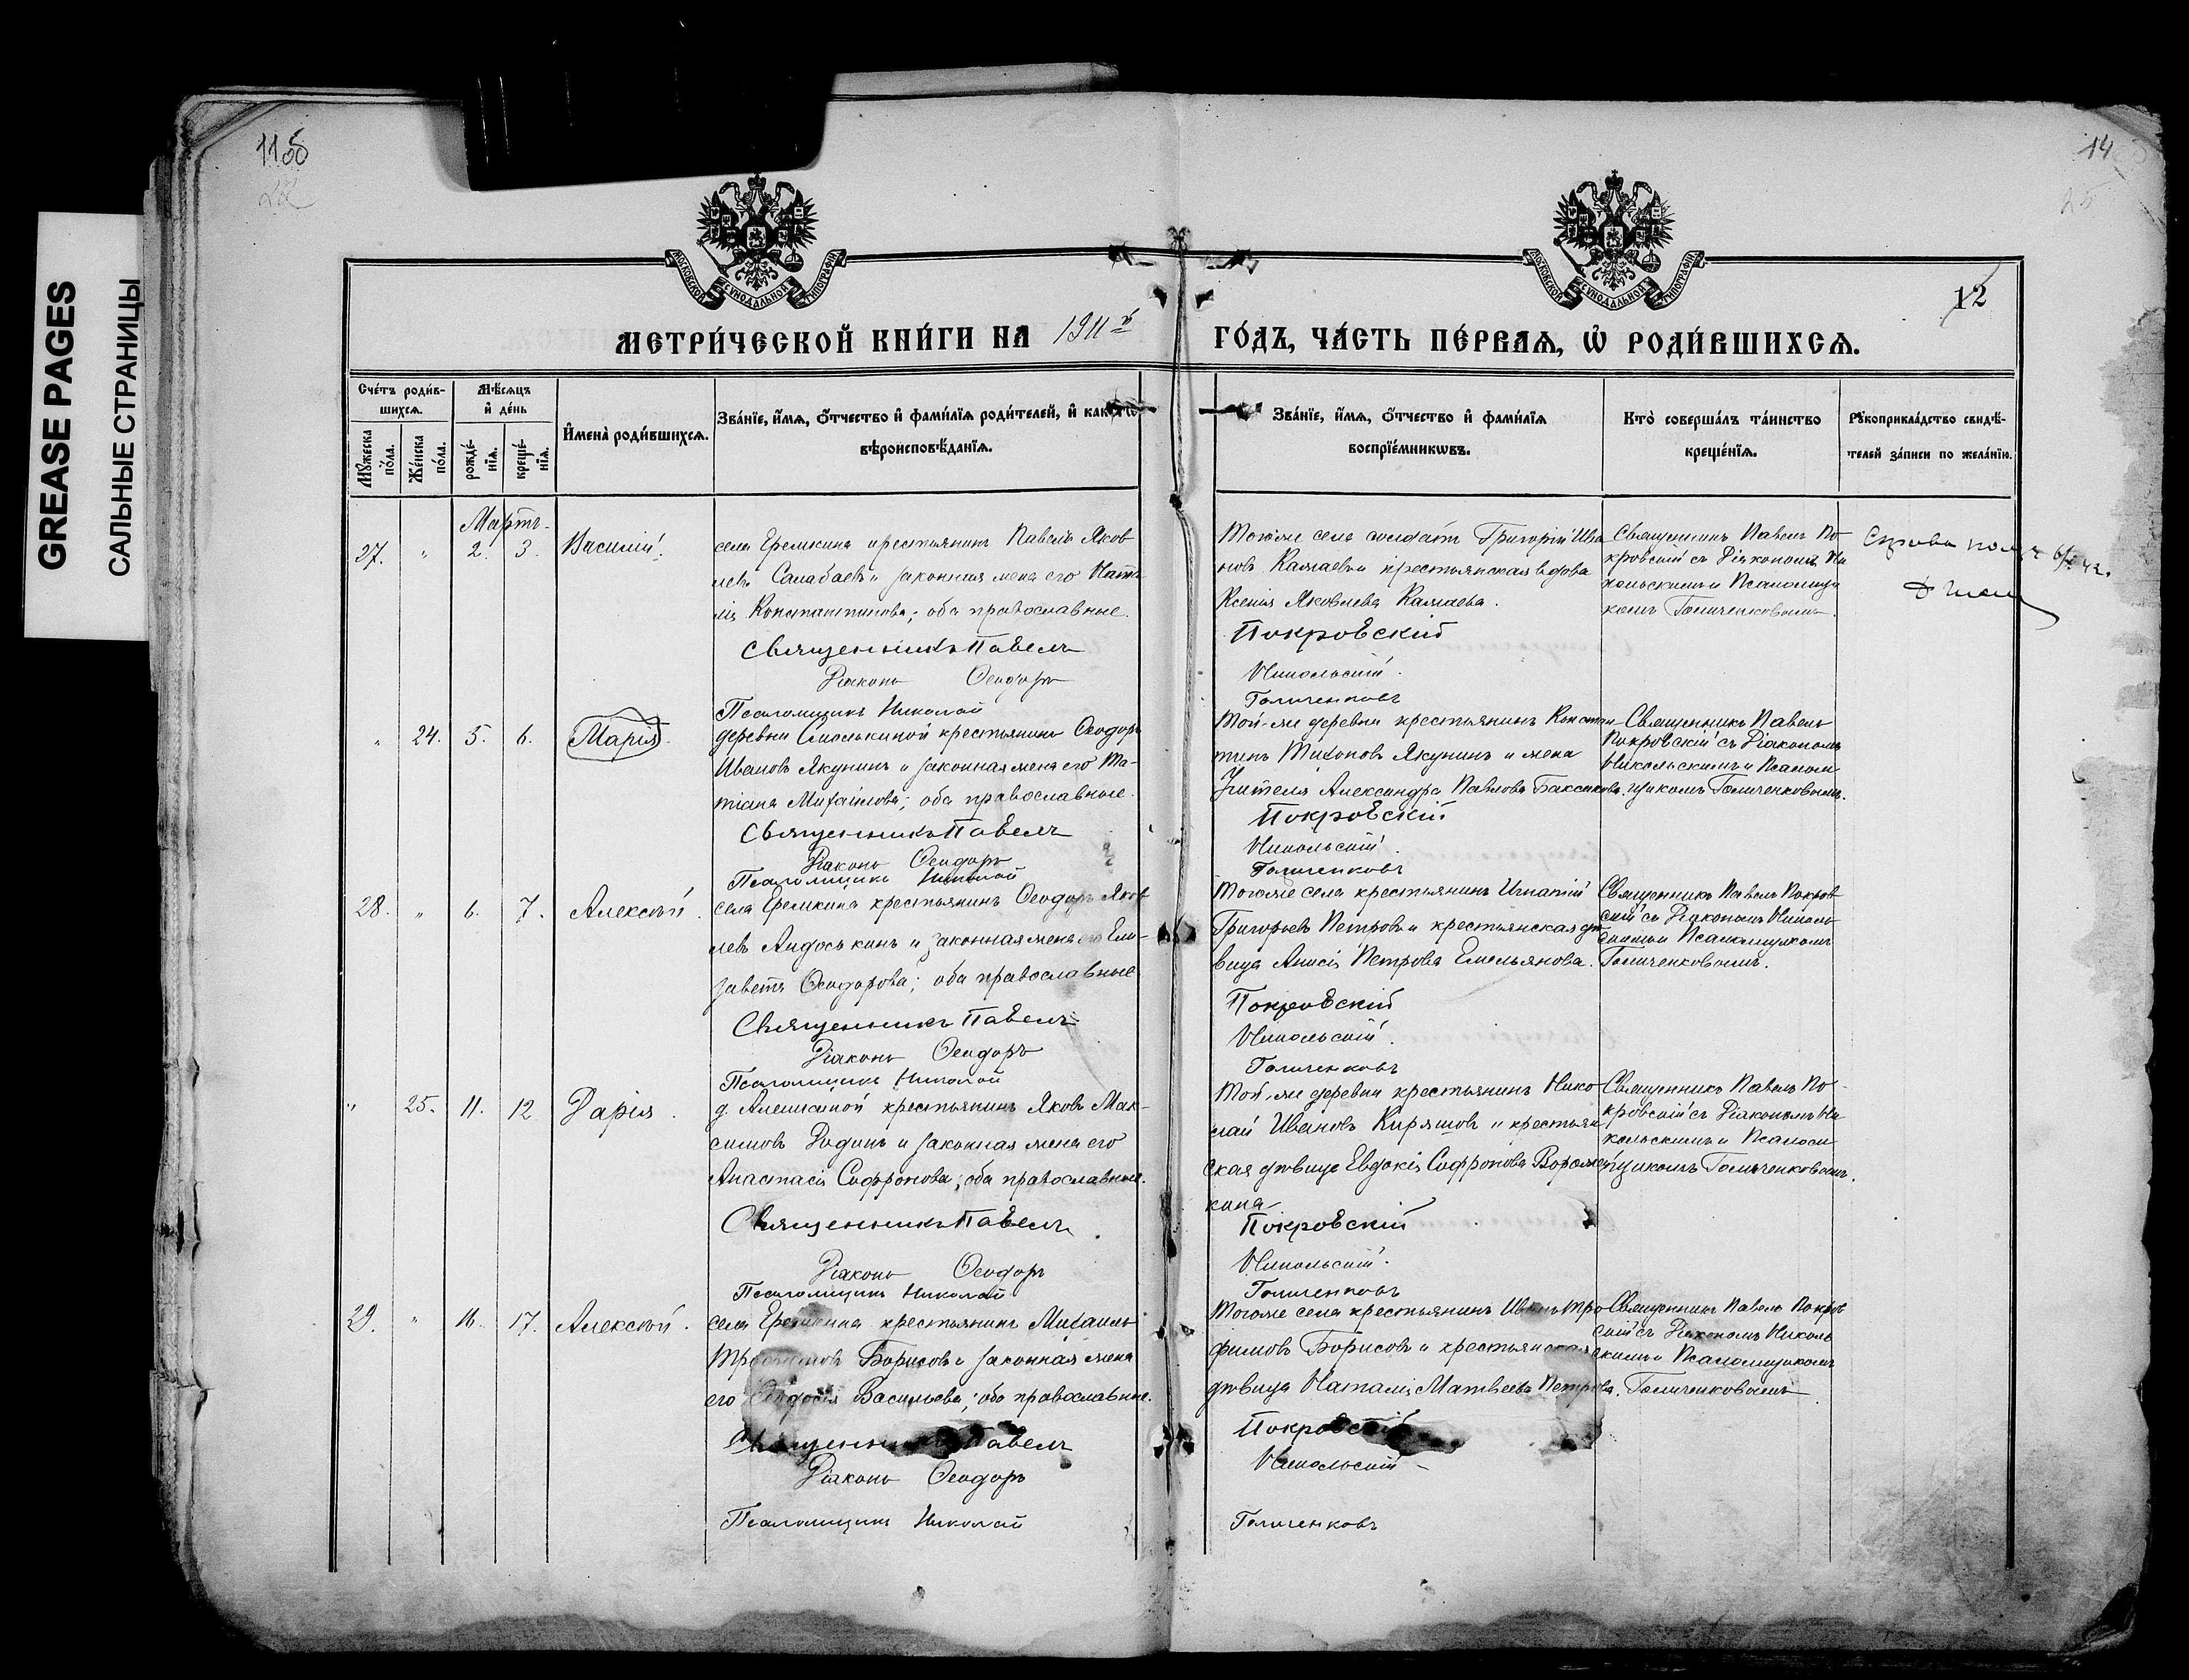 GREASE PAGES
САЛЬНЫЕ СТРАНИЦЫ
11об
22
14
25
12
МОСКОВСКОЙ СУНОДАЛЬНОЙ ТИПОГРАФІИ
МОСКОВСКОЙ СУНОДАЛЬНОЙ ТИПОГРАФІИ
МЕТРИ́ЧЕСКОЙ КНИ́ГИ НА 1911й ГО́ДЪ, ЧА́СТЬ ПЕ́РВАЯ, Ѡ РОДИ́ВШИХСЯ.
Сче́тъ роди́в-
шихся.
Мꙋ́жеска по́ла.
Же́нска по́ла.
Мѣ́сяцъ
и де́нь
рожде́-
нїя.
креще́-
нїя.
И҆мена̀ роди́вшихся.
Зва́нїе, и҆́мя, ѻ҆́тчество и҆ фами́лїя роди́телей, и҆ како́гѡ
вѣроисповѣ́данїя.
Зва́нїе, и҆́мя, ѻ҆́тчество и҆ фами́лїя
воспрїе́мникѡвъ.
Кто̀ соверша́лъ та́инство
креще́нїя.
Рꙋкоприкла́дство свидѣ́-
телей за́писи по жела́нїю.
Мартъ.
27. " 2. 3. Василій.
села Еремкина крестьянинъ Павелъ Яков
левъ Салабаевъ и законная жена его Ната
лія Константинова; оба православные.
Священникъ Павелъ
Діаконъ Ѳеодоръ
Псаломщикъ Николай
Тогоже села солдатъ Григорій Ива
новъ Калгаевъ и крестьянская вдова
Ксенія Яковлева Калгаева.
Покровскій
Никольскій.
Голиченковъ
Священникъ Павелъ По-
кровскій съ Діакономъ Ни
кольскимъ и Псаломщи
комъ Голиченковымъ.
" 24. 5. 6. Марія.
деревни Смолькиной крестьянинъ Ѳеодоръ
Ивановъ Якунинъ и законная жена его Та-
тіана Михайлова; оба православные.
Священникъ Павелъ
Діаконъ Ѳеодоръ
Псаломщикъ Николай
Той-же деревни крестьянинъ Констан-
тинъ Тихоновъ Якунинъ и жена
Учителя Александра Павлова Баксакова.
Покровскій
Никольскій.
Голиченковъ
Священникъ Павелъ
Покровскій съ Діакономъ
Никольскимъ и Псалом
щикомъ Голиченковымъ.
28. " 6. 7. Алексѣй.
села Еремкина крестьянинъ Ѳеодоръ Яков
левъ Андоськинъ и законная жена его Ели-
завета Ѳеодорова; оба православные
Священникъ Павелъ
Діаконъ Ѳеодоръ
Псаломщикъ Николай
Тогоже села крестьянинъ Игнатій
Григорьевъ Петровъ и крестьянская дѣ
вица Анисія Петрова Емельянова.
Покровскій
Никольскій.
Голиченковъ
Священникъ Павелъ Покров
скій съ Діакономъ Николь
скимъ и Псаломщикомъ
Голиченковымъ.
" 25. 11. 12 Дарія.
д. Алешкиной крестьянинъ Яковъ Мак-
симовъ Родинъ и законная жена его
Анастасія Софронова; оба православные.
Священникъ Павелъ
Діаконъ Ѳеодоръ
Псаломщикъ Николай
Той-же деревни крестьянинъ Нико
лай Ивановъ Киряшовъ и крестьян
ская дѣвица Евдокія Софронова Ворожей
кина
Покровскій
Никольскій.
Голиченковъ
Священникъ Павелъ По-
кровскій съ Діакономъ Ни
кольскимъ и Псалом
щикомъ Голиченковымъ.
29. " 16. 17. Алексѣй.
села Еремкина крестьянинъ Михаилъ
Трофимовъ Борисовъ и законная жена
его Ѳеодосія Васильева; оба православные.
Священникъ Павелъ
Діаконъ Ѳеодоръ
Псаломщикъ Николай
Тогоже села крестьянинъ Иванъ Тро-
фимовъ Борисовъ и крестьянская
дѣвица Наталія Матвеева Петрова.
Покровскій
Никольскій
Голиченковъ
Священникъ Павелъ Покров
скій съ Діакономъ Николь
скимъ и Псаломщикомъ
Голиченковымъ